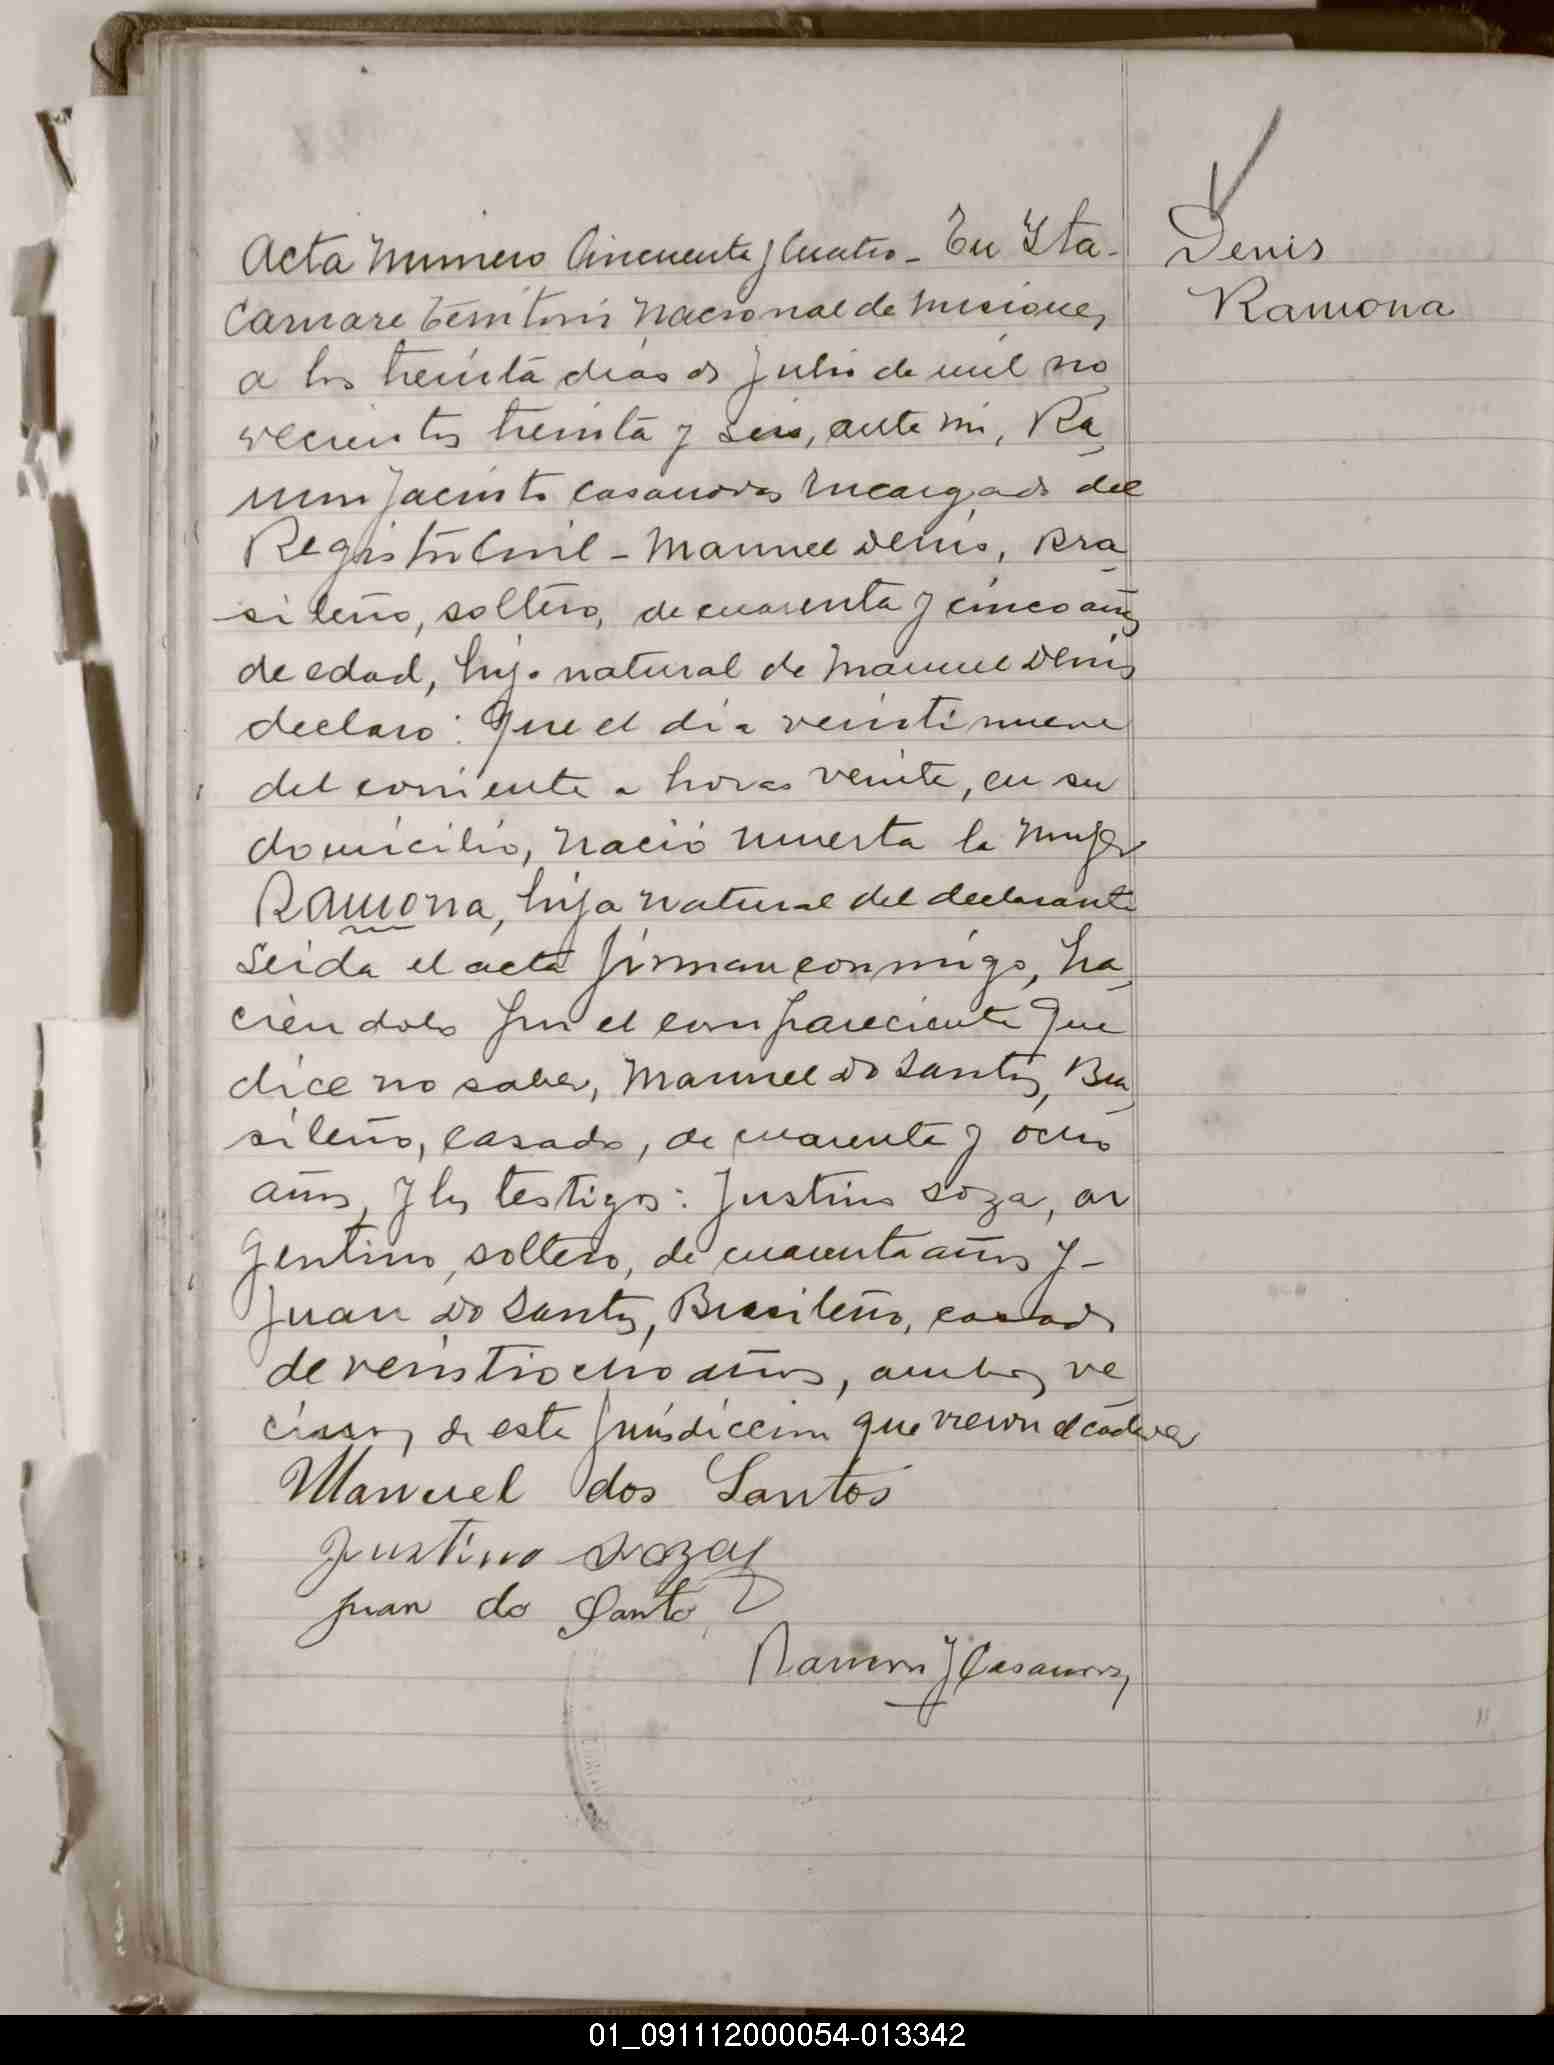 Acta Numero Cincuenta y Cuatro - En Ita-
camare Territorio Nacional de Misiones,
a los treinta dias de Julio de mil no
vecientos treinta y seis, ante mi, Ra
mon Jacinto Casanovas Encargado del
Registro Civil - Manuel Denis, Bra
sileño, soltero, de cuarenta y cinco años
de edad, hijo natural de Manuel Denis
declaro: Que el dia veintinueve
del corriente a horas veinte, en su
domicilio, nació muerta la mujer
Ramona, hija natural del declarante
Leida el acta firman conmigo, ha
ciendolo por el compareciente que
dice no saber, Manuel do Santos, Bra
sileño, casado, de cuarenta y ocho
años, y los testigos: Justino Soza, ar
gentino, soltero, de cuarenta años y -
Juan do Santos, Brasileño, casado
de veintiocho años, ambos ve
cinos de esta jurisdiccion que vieron el cadaver
Manuel dos Santos
Justino Soza
Juan do Santo
Ramon J Casanovas
Denis
Ramona
01_091112000054-013342